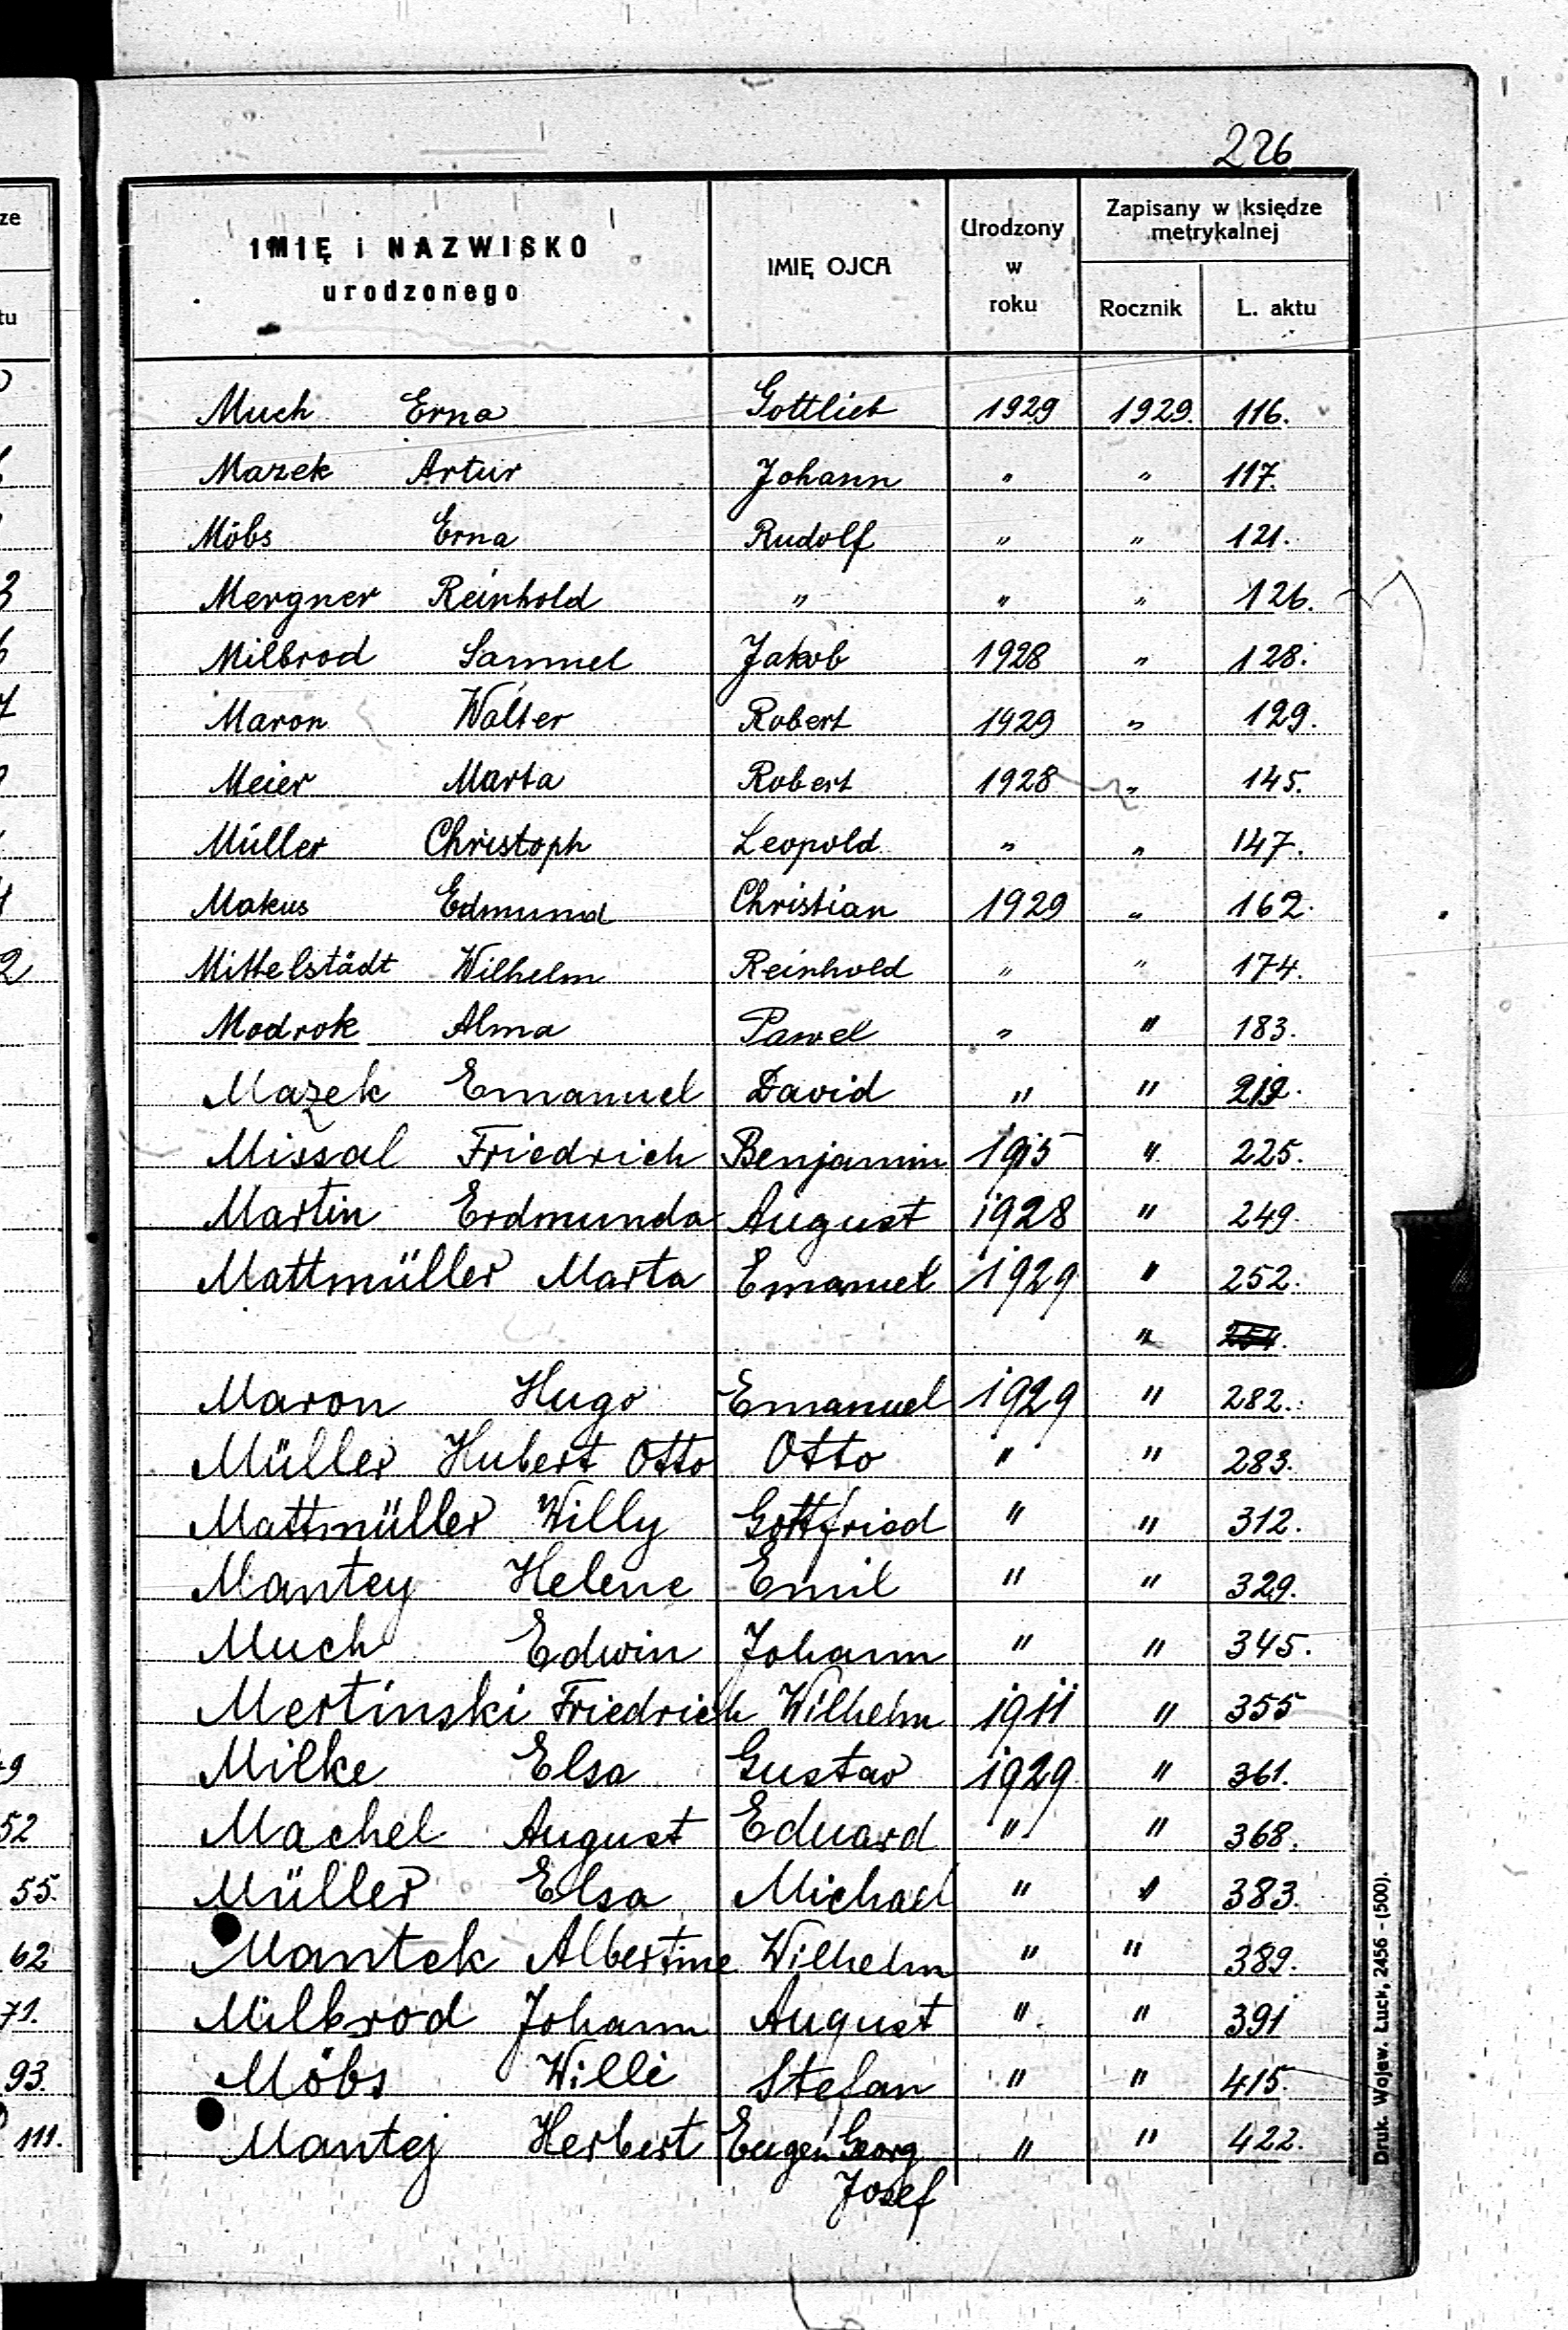 226
IMIĘ i NAZWISKO urodzonego
IMIĘ OJCA
Urodzony w roku
Zapisany w księdze metrykalnej
Rocznik
L. aktu
Much Erna Gottlieb 1929 1929. 116.
Mazek Artur Johann " " 117.
Möbs Erna Rudolf " " 121.
Mergner Reinhold " " " 126.
Milbrod Samuel Jakob 1928 " 128.
Maron Walter Robert 1929 " 129.
Meier Marta Robert 1928 " 145.
Müller Christoph Leopold " " 147.
Makus Edmund Christian 1929 " 162.
Mittelstädt Wilhelm Reinhold " " 174.
Modrok Alma Pawel " " 183.
Mazek Emanuel David " " 212.
Missal Friedrich Benjamin 1915 " 225.
Martin Erdmunda August 1928 " 249.
Mattmüller Marta Emanuel 1929 " 252.
" 254.
Maron Hugo Emanuel 1929 " 282.
Müller Hubert Otto Otto " " 283.
Mattmüller Willy Gottfried " " 312.
Mantey Helene Emil " " 329.
Much Edwin Johann " " 345.
Mertinski Friedrich Wilhelm 1911 " 355
Milke Elsa Gustav 1929 " 361.
Machel August Eduard " " 368.
Müller Elsa Michael " " 383.
Mantek Albertine Wilhelm " " 389.
Milbrod Johann August " " 391
Möbs Willi Stefan " " 415.
Mantej Herbert Eugen Georg " " 422.
Josef
Druk. Wojew. Łuck, 2456 – (500).
ze
tu
52
55.
62
71.
93.
111.